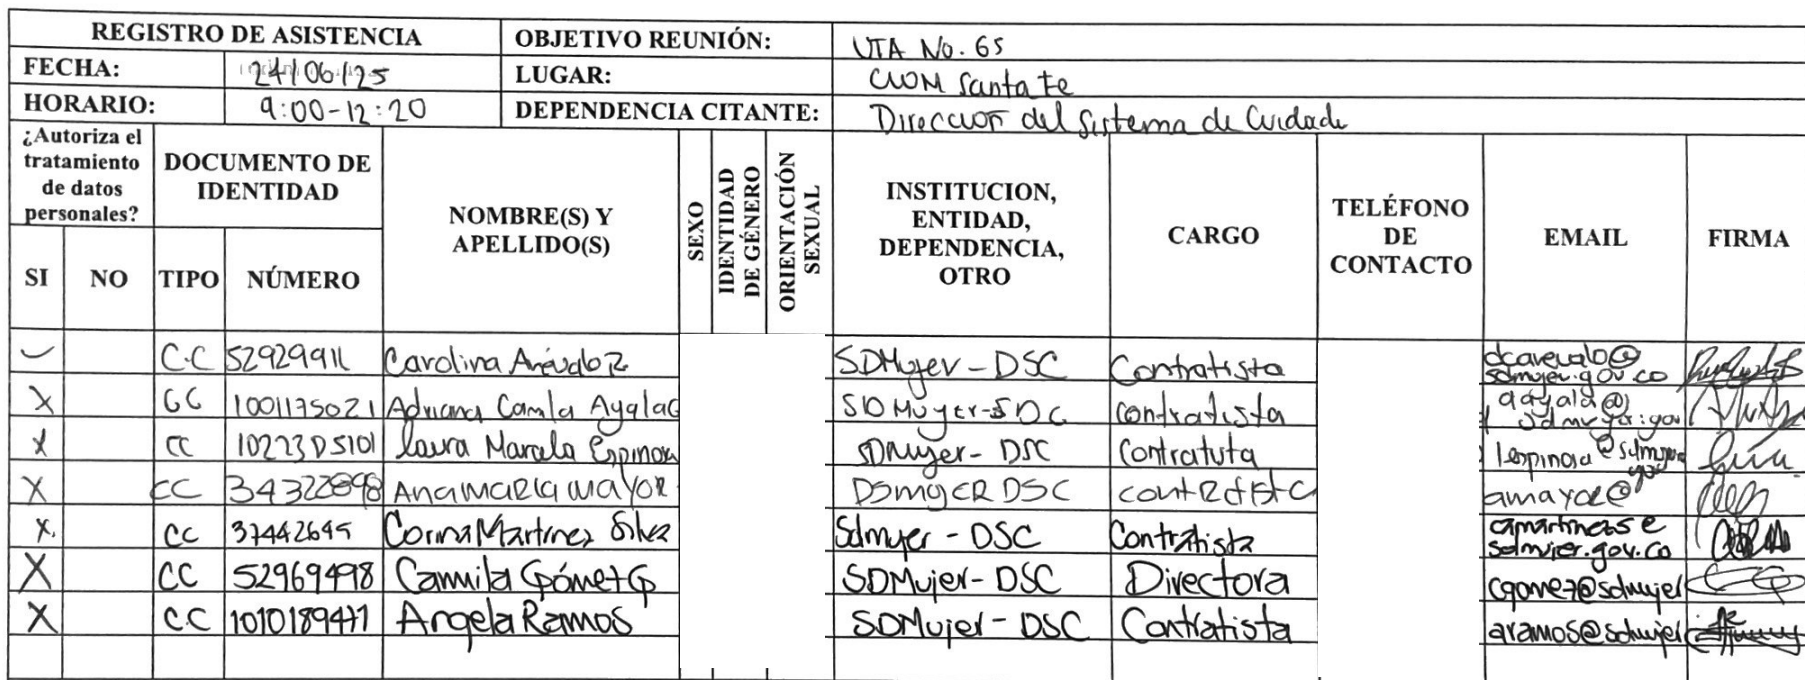 REGISTRO DE ASISTENCIA OBJETIVO REUNIÓN: UTA No. 65
FECHA: 24/06/25 LUGAR: CIOM Santa Fe
HORARIO: 9:00-12:20 DEPENDENCIA CITANTE: Dirección del Sistema de Cuidado
¿Autoriza el tratamiento de datos personales? DOCUMENTO DE IDENTIDAD NOMBRE(S) Y APELLIDO(S) SEXO IDENTIDAD DE GÉNERO ORIENTACIÓN SEXUAL INSTITUCION, ENTIDAD, DEPENDENCIA, OTRO CARGO TELÉFONO DE CONTACTO EMAIL FIRMA
SI NO TIPO NÚMERO
C.C Carolina Arévalo R SDMujer - DSC Contratista dcarevalo@sdmujer.gov.co
X CC 1001175021 Adriana Camila Ayala SDMujer-SDC contratista aayala@sdmujer.gov
X CC Laura Marcela Espinosa SDMujer - DSC Contratista lespinosa@sdmujer
X CC Ana Maria Mayor DSmujer DSC contratista
X CC Martinez Silva Sdmujer - DSC Contratista sdmujer.gov.co
X CC 52969498 Camila Gómez G SDMujer - DSC Directora cgomez@sdmujer
X C.C Angela Ramos SDMujer - DSC Contratista aramos@sdmujer